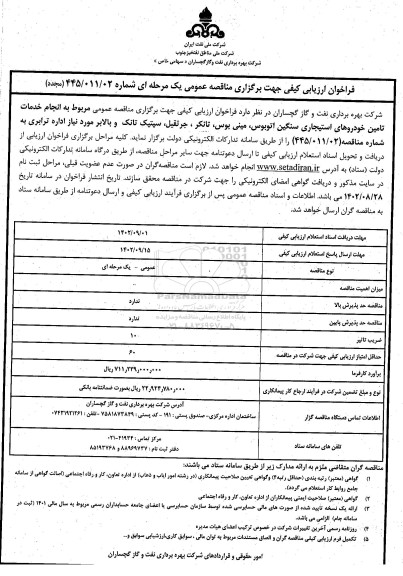 شرکت ملی نفت ایران
شرکت ملی مناطق نفتخیز جنوب
شرکت بهره برداری نفت و گاز گچساران « سهامی خاص »
فراخوان ارزیابی کیفی جهت برگزاری مناقصه عمومی یک مرحله ای شماره ۴۴۵/۰۱۱/۰۲ (مجدد)
شرکت بهره برداری نفت و گاز گچساران در نظر دارد فراخوان ارزیابی کیفی جهت برگزاری مناقصه عمومی مربوط به انجام خدمات
تامین خودروهای استیجاری سنگین اتوبوس، مینی بوس، تانکر ، جرثقیل، سپتیک تانک و بالابر مورد نیاز اداره ترابری به
شماره مناقصه(۴۴۵/۰۱۱/۰۲) را از طریق سامانه تدارکات الکترونیکی دولت برگزار نماید. کلیه مراحل برگزاری فراخوان ارزیابی از
دریافت و تحویل اسناد استعلام ارزیابی کیفی تا ارسال دعوتنامه جهت سایر مراحل مناقصه، از طریق درگاه سامانه تدارکات الکترونیکی
دولت (ستاد) به آدرس www.setadiran.ir انجام خواهد شد. لازم است مناقصه گران در صورت عدم عضویت قبلی، مراحل ثبت نام
در سایت مذکور و دریافت گواهی امضای الکترونیکی را جهت شرکت در مناقصه محقق سازند. تاریخ انتشار فراخوان در سامانه تاریخ
۱۴۰۲/۰۸/۲۸ می باشد. اطلاعات و اسناد مناقصه عمومی پس از برگزاری فرآیند ارزیابی کیفی و ارسال دعوتنامه از طریق سامانه ستاد
به مناقصه گران ارسال خواهد شد.
مهلت دریافت اسناد استعلام ارزیابی کیفی ۱۴۰۲/۰۹/۰۱
مهلت ارسال پاسخ استعلام ارزیابی کیفی ۱۴۰۲/۰۹/۱۵
نوع مناقصه عمومی - یک مرحله ای
میزان اهمیت مناقصه
مناقصه حد پذیرش بالا ندارد
مناقصه حد پذیرش پایین ندارد
ضریب تاثیر ۱۰
حداقل امتیاز ارزیابی کیفی جهت شرکت در مناقصه ۶۰
برآورد کارفرما ۷۱۱٫۲۳۹٫۰۰۰٫۰۰۰ ریال
نوع و مبلغ تضمین شرکت در فرآیند ارجاع کار پیمانکاری ۲۲٫۹۲۴٫۷۸۰٫۰۰۰ ریال بصورت ضمانتنامه بانکی
اطلاعات تماس دستگاه مناقصه گزار آدرس شرکت بهره برداری نفت و گاز گچساران
ساختمان اداره مرکزی- صندوق پستی : ۱۹۱ - کد پستی : ۷۵۸۱۸۷۳۸۴۹ - تلفن : ۰۷۴۳۱۹۲۱۲۶۱
تلفن های سامانه ستاد مرکز تماس : ۴۱۹۳۴-۰۲۱
دفتر ثبت نام : ۸۸۹۶۹۷۳۷ و ۸۵۱۹۳۷۶۸
مناقصه گران متقاضی ملزم به ارائه مدارک زیر از طریق سامانه ستاد می باشند:
۱) گواهی (معتبر) رتبه بندی (حداقل رتبه۴) وگواهی تعیین صلاحیت پیمانکاری (در رشته امور ایاب و ذهاب) از اداره تعاون، کار و رفاه اجتماعی (اصالت گواهی از سامانه
جامع روابط کار استعلام می گردد).
۲) گواهی (معتبر) صلاحیت ایمنی پیمانکاران از اداره تعاون، کار و رفاه اجتماعی
۳) ارائه یک نسخه تایید شده از صورت های مالی حسابرسی شده توسط سازمان حسابرسی یا اعضای جامعه حسابداران رسمی مربوط به سال مالی ۱۴۰۱ (ثبت در
سامانه جام)، الزامی می باشد.
۴) روزنامه رسمی آخرین تغییرات شرکت در خصوص ترکیب اعضای هیات مدیره
۵) تکمیل فرم ارزیابی کیفی مناقصه گران و الصاق مستندات مربوط به توان مالی ، سوابق کاری،ارزشیابی سوابق و...
امور حقوقی و قراردادهای شرکت بهره برداری نفت و گاز گچساران